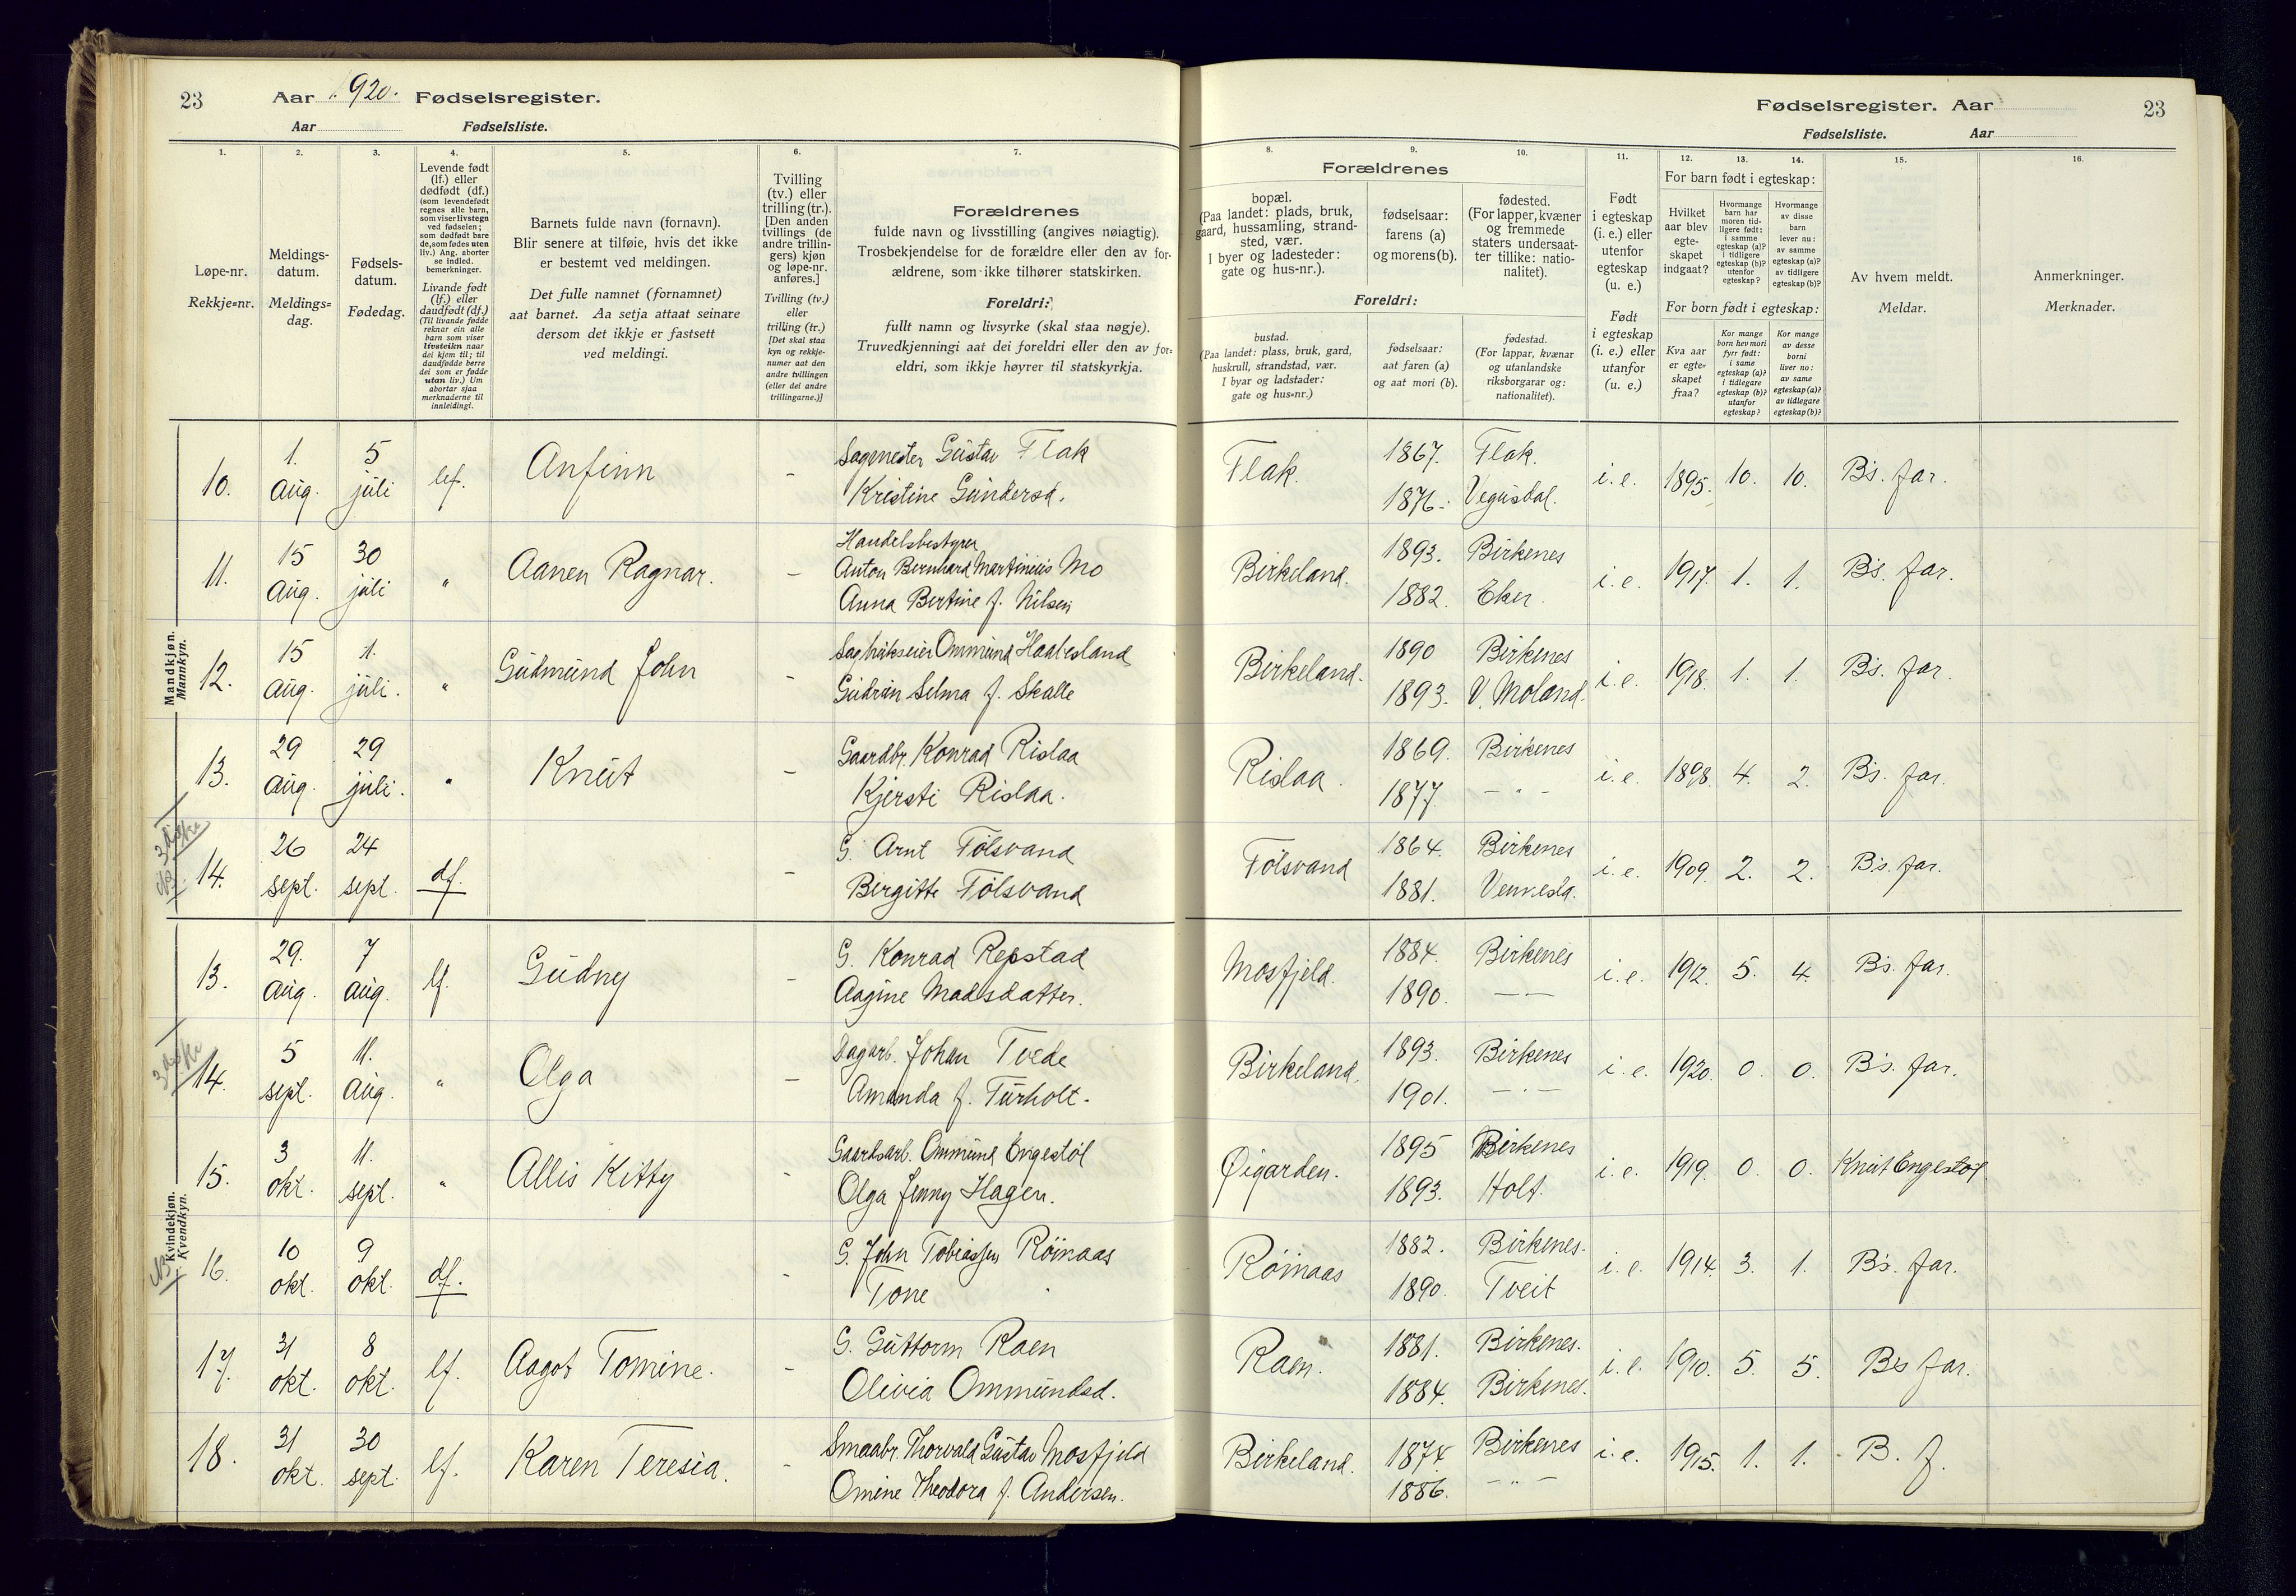 23
Aar 1920. Fødselsregister.
Aar Fødselsliste.
1.
2.
3.
4.
5.
6.
7.
Løpe-nr.
Rekkje-nr.
Meldings-
datum.
Meldings-
dag.
Fødsels-
datum.
Fødedag.
Levende født
(lf.) eller
dødfødt (df.)
(som levendefødt
regnes alle barn,
som viser livstegn
ved fødselen;
som dødfødt bare
de, som fødes uten
liv.) Ang. aborter
se indled.
bemerkninger.
Livande født
(lf.) eller
daudfødt (df.)
(Til livande fødde
reknar ein alle
barn som viser
livsteikn naar
dei kjem til; til
daudfødde berre
dei som er fødde
utan liv.) Um
abortar sjaa
merknaderne til
innleidingi.
Barnets fulde navn (fornavn).
Blir senere at tilføie, hvis det ikke
er bestemt ved meldingen.
Det fulle namnet (fornamnet)
aat barnet. Aa setja attaat seinare
dersom det ikkje er fastsett
ved meldingi.
Tvilling
(tv.) eller
trilling (tr.).
[Den anden
tvillings (de
andre trillin-
gers) kjøn
og løpe-nr.
anføres.]
Tvilling (tv.)
eller
trilling (tr.)
[Det skal staa
kyn og rekkje-
numer aat den
andre tvillingen
(eller dei andre
trillingarne.)]
Forældrenes
fulde navn og livsstilling (angives nøiagtig).
Trosbekjendelse for de forældre eller den av for-
ældrene, som ikke tilhører statskirken.
Foreldri:
fullt namn og livsyrke (skal staa nøgje).
Truvedkjenningi aat dei foreldri eller den av for-
eldri, som ikkje høyrer til statskyrkja.
Fødselsregister. Aar
23
Fødselsliste. Aar
8.
9.
10.
11.
12.
13.
14.
15.
16.
Forældrenes
bopæl.
(Paa landet: plads, bruk,
gaard, hussamling, strand-
sted, vær.
I byer og ladesteder:
gate og hus-nr.).
fødselsaar:
farens (a)
og morens (b).
fødested.
(For lapper, kvæner
og fremmede
staters undersaat-
ter tillike: natio-
nalitet).
Foreldri:
bustad.
(Paa landet: plass, bruk, gard,
huskrull, strandstad, vær.
I byar og ladstader:
gate og hus-nr.)
fødselsaar:
aat faren (a)
og aat mori (b).
fødestad.
(For lappar, kvænar
og utanlandske
riksborgarar og:
nationalitet).
Født
i egteskap
(i. e.) eller
utenfor
egteskap
(u. e.)
Født
i egteskap
(i. e.) eller
utanfor
(u. e.)
For barn født i egteskap:
Hvilket
aar blev
egte-
skapet
indgaat?
Hvormange
barn har
moren tid-
ligere født:
i samme
egteskap (a)?
i tidligere
egteskap (b)?
utenfor
egteskap?
Hvormange
av disse
barn
lever nu:
av samme
egteskap (a)?
av tidligere
egteskap (b)?
For born født i egteskap:
Kva aar
er egte-
skapet
fraa?
Kor mange
born hev mori
fyrr født:
i same
egteskap (a)?
i tidlegare
egteskap (b)?
utanfor
egteskap?
Kor mange
av desse
borni
liver no:
av same
egteskap (a)?
av tidlegare
egteskap (b)?
Av hvem meldt.
Meldar.
Anmerkninger.
Merknader.
Mandkjøn.
Mannkyn.
10. 1. Aug. 5 juli lef. Anfinn - Sagmester Gustav Flak
Kristine Gundersd. Flak. 1867. Flak.
1876. Vegusdal. i. e. 1895. 10. 10. B's. far.
11. 15 Aug. 30 juli " Aanen Ragnar. - Handelsbestyrer
Anton Bernhard Martinius Mo
Anna Bertine f. Nilsen Birkeland. 1893. Birkenes
1882. Eker. i. e. 1917. 1. 1. B's. far.
12. 15 Aug. 1. juli. " Gudmund John - Sagbrukseier Ommund Haabesland
Gudrun Selma f. Skalle Birkeland. 1890 Birkenes
1893. V. Moland. i. e. 1918. 1. 1. B's. far.
13. 29 Aug. 29 juli. " Knut - Gaardbr. Konrad Rislaa
Kjersti Rislaa. Rislaa. 1869. Birkenes
1877. - " - i. e. 1898. 4. 2. B's. far.
NB.
14. 26 sept. 24 sept. df. - G. Arnt Tølsvand
Birgitte Tølsvand Tølsvand 1864. Birkenes
1881. Vennesla. i. e. 1909. 2. 2. B's. far.
Kvindekjøn.
Kvendkyn.
13. 29. Aug. 7 Aug. lf. Gudny - G. Konrad Repstad
Aagine Madsdatter. Mosfjeld. 1884. Birkenes
1890. - - i. e. 1912. 5. 4. B's. far.
14. 5 sept. 11. Aug. " Olga - Dagarb. Johan Tvede
Amanda f. Turholt. Birkeland. 1893. Birkenes
1901. - " - i. e. 1920. 0. 0. B's. far.
15. 3 okt. 11. sept. " Allis Kitty - Gaardsarb. Ommund Engestøl
Olga Jenny Hagen. Øigarden. 1895 Birkenes
1893. Holt. i. e. 1919. 0. 0. Knut Engestøl
NB
16. 10 okt. 9 okt. df. - G. John Tobiassen Røinaas
Tone Røinaas 1882. Birkenes.
1890. Tveit i. e. 1914. 3. 1. B's. far.
17. 31 okt. 8 okt. lf. Aagot Tomine. - G. Guttorm Raen
Olivia Ommundsd. Raen. 1881. Birkenes.
1884. Birkenes. i. e. 1910. 5. 5. B's far.
18. 31 okt. 30 sept. lf. Karen Teresia. - Smaabr. Thorvald Gustav Mosfjeld
Omine Theodora f. Andersen. Birkeland. 1874 Birkenes
1886. - " - i. e. 1915. 1. 1. B. f.